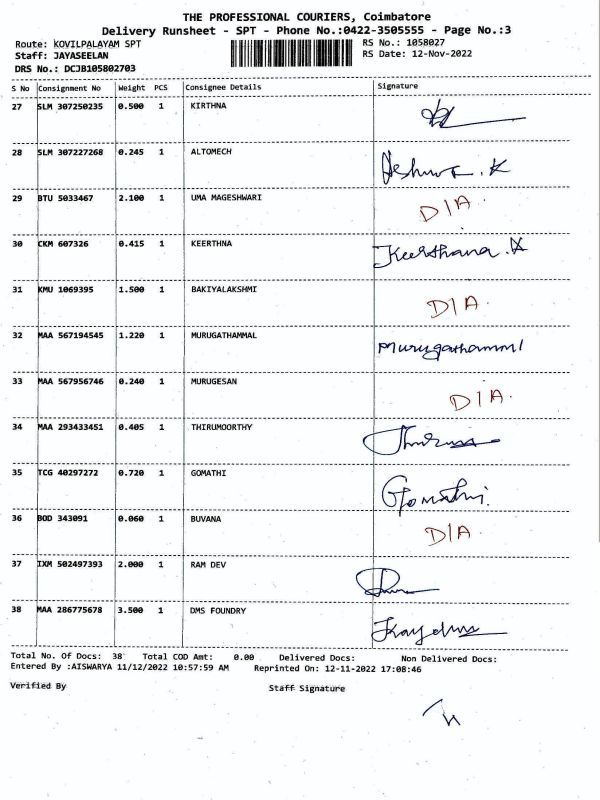 THE PROFESSIONAL COURIERS, Coimbatore
Delivery Runsheet - SPT - Phone No.:0422-3505555 - Page No.:3
Route: KOVILPALAYAM SPT RS No.: 1058027
Staff: JAYASEELAN RS Date: 12-Nov-2022
DRS No.: DCJB105802703
S No Consignment No Weight PCS Consignee Details Signature
27 SLM 307250235 0.500 1 KIRTHNA
28 SLM 307227268 0.245 1 ALTOMECH
29 BTU 5033467 2.100 1 UMA MAGESHWARI D/A.
30 CKM 607326 0.415 1 KEERTHNA Keerthana.K
31 KMU 1069395 1.500 1 BAKIYALAKSHMI D/A.
32 MAA 567194545 1.220 1 MURUGATHAMMAL Murugathammal
33 MAA 567956746 0.240 1 MURUGESAN D/A.
34 MAA 293433451 0.405 1 THIRUMOORTHY
35 TCG 40297272 0.720 1 GOMATHI Gomathi.
36 BOD 343091 0.060 1 BUVANA D/A
37 IXM 502497393 2.000 1 RAM DEV
38 MAA 286775678 3.500 1 DMS FOUNDRY
Total No. Of Docs: 38 Total COD Amt: 0.00 Delivered Docs: Non Delivered Docs:
Entered By :AISWARYA 11/12/2022 10:57:59 AM Reprinted On: 12-11-2022 17:08:46
Verified By Staff Signature